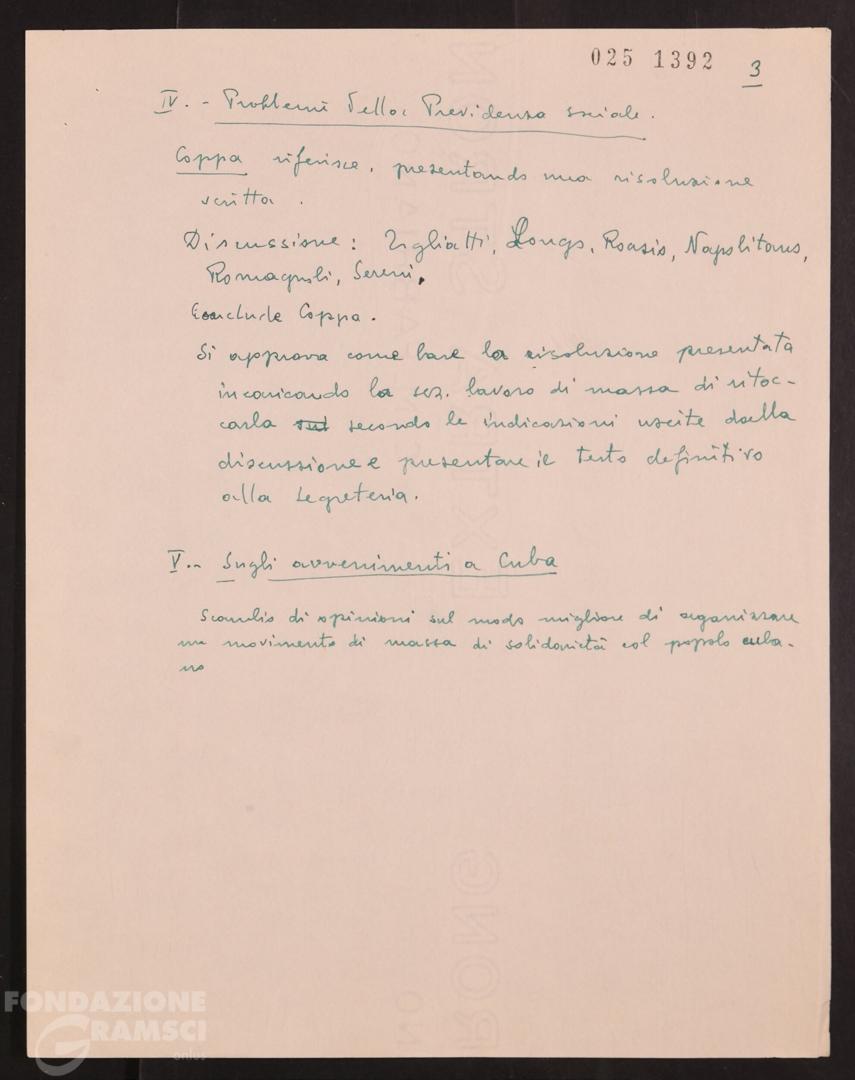 025 1392 3
IV. - Problemi della Previdenza sociale.
Coppa riferisce, presentando una risoluzione
scritta.
Discussione: Togliatti, Longo, Roasio, Napolitano,
Romagnoli, Sereni.
Conclude Coppa.
Si approva come base la risoluzione presentata
incaricando la sez. lavoro di massa di ritoc-
carla secondo le indicazioni uscite dalla
discussione e presentare il testo definitivo
alla segreteria.
V. - Sugli avvenimenti a Cuba
Scambio di opinioni sul modo migliore di organizzare
un movimento di massa di solidarietà col popolo cuba-
no
FONDAZIONE
GRAMSCI
onlus